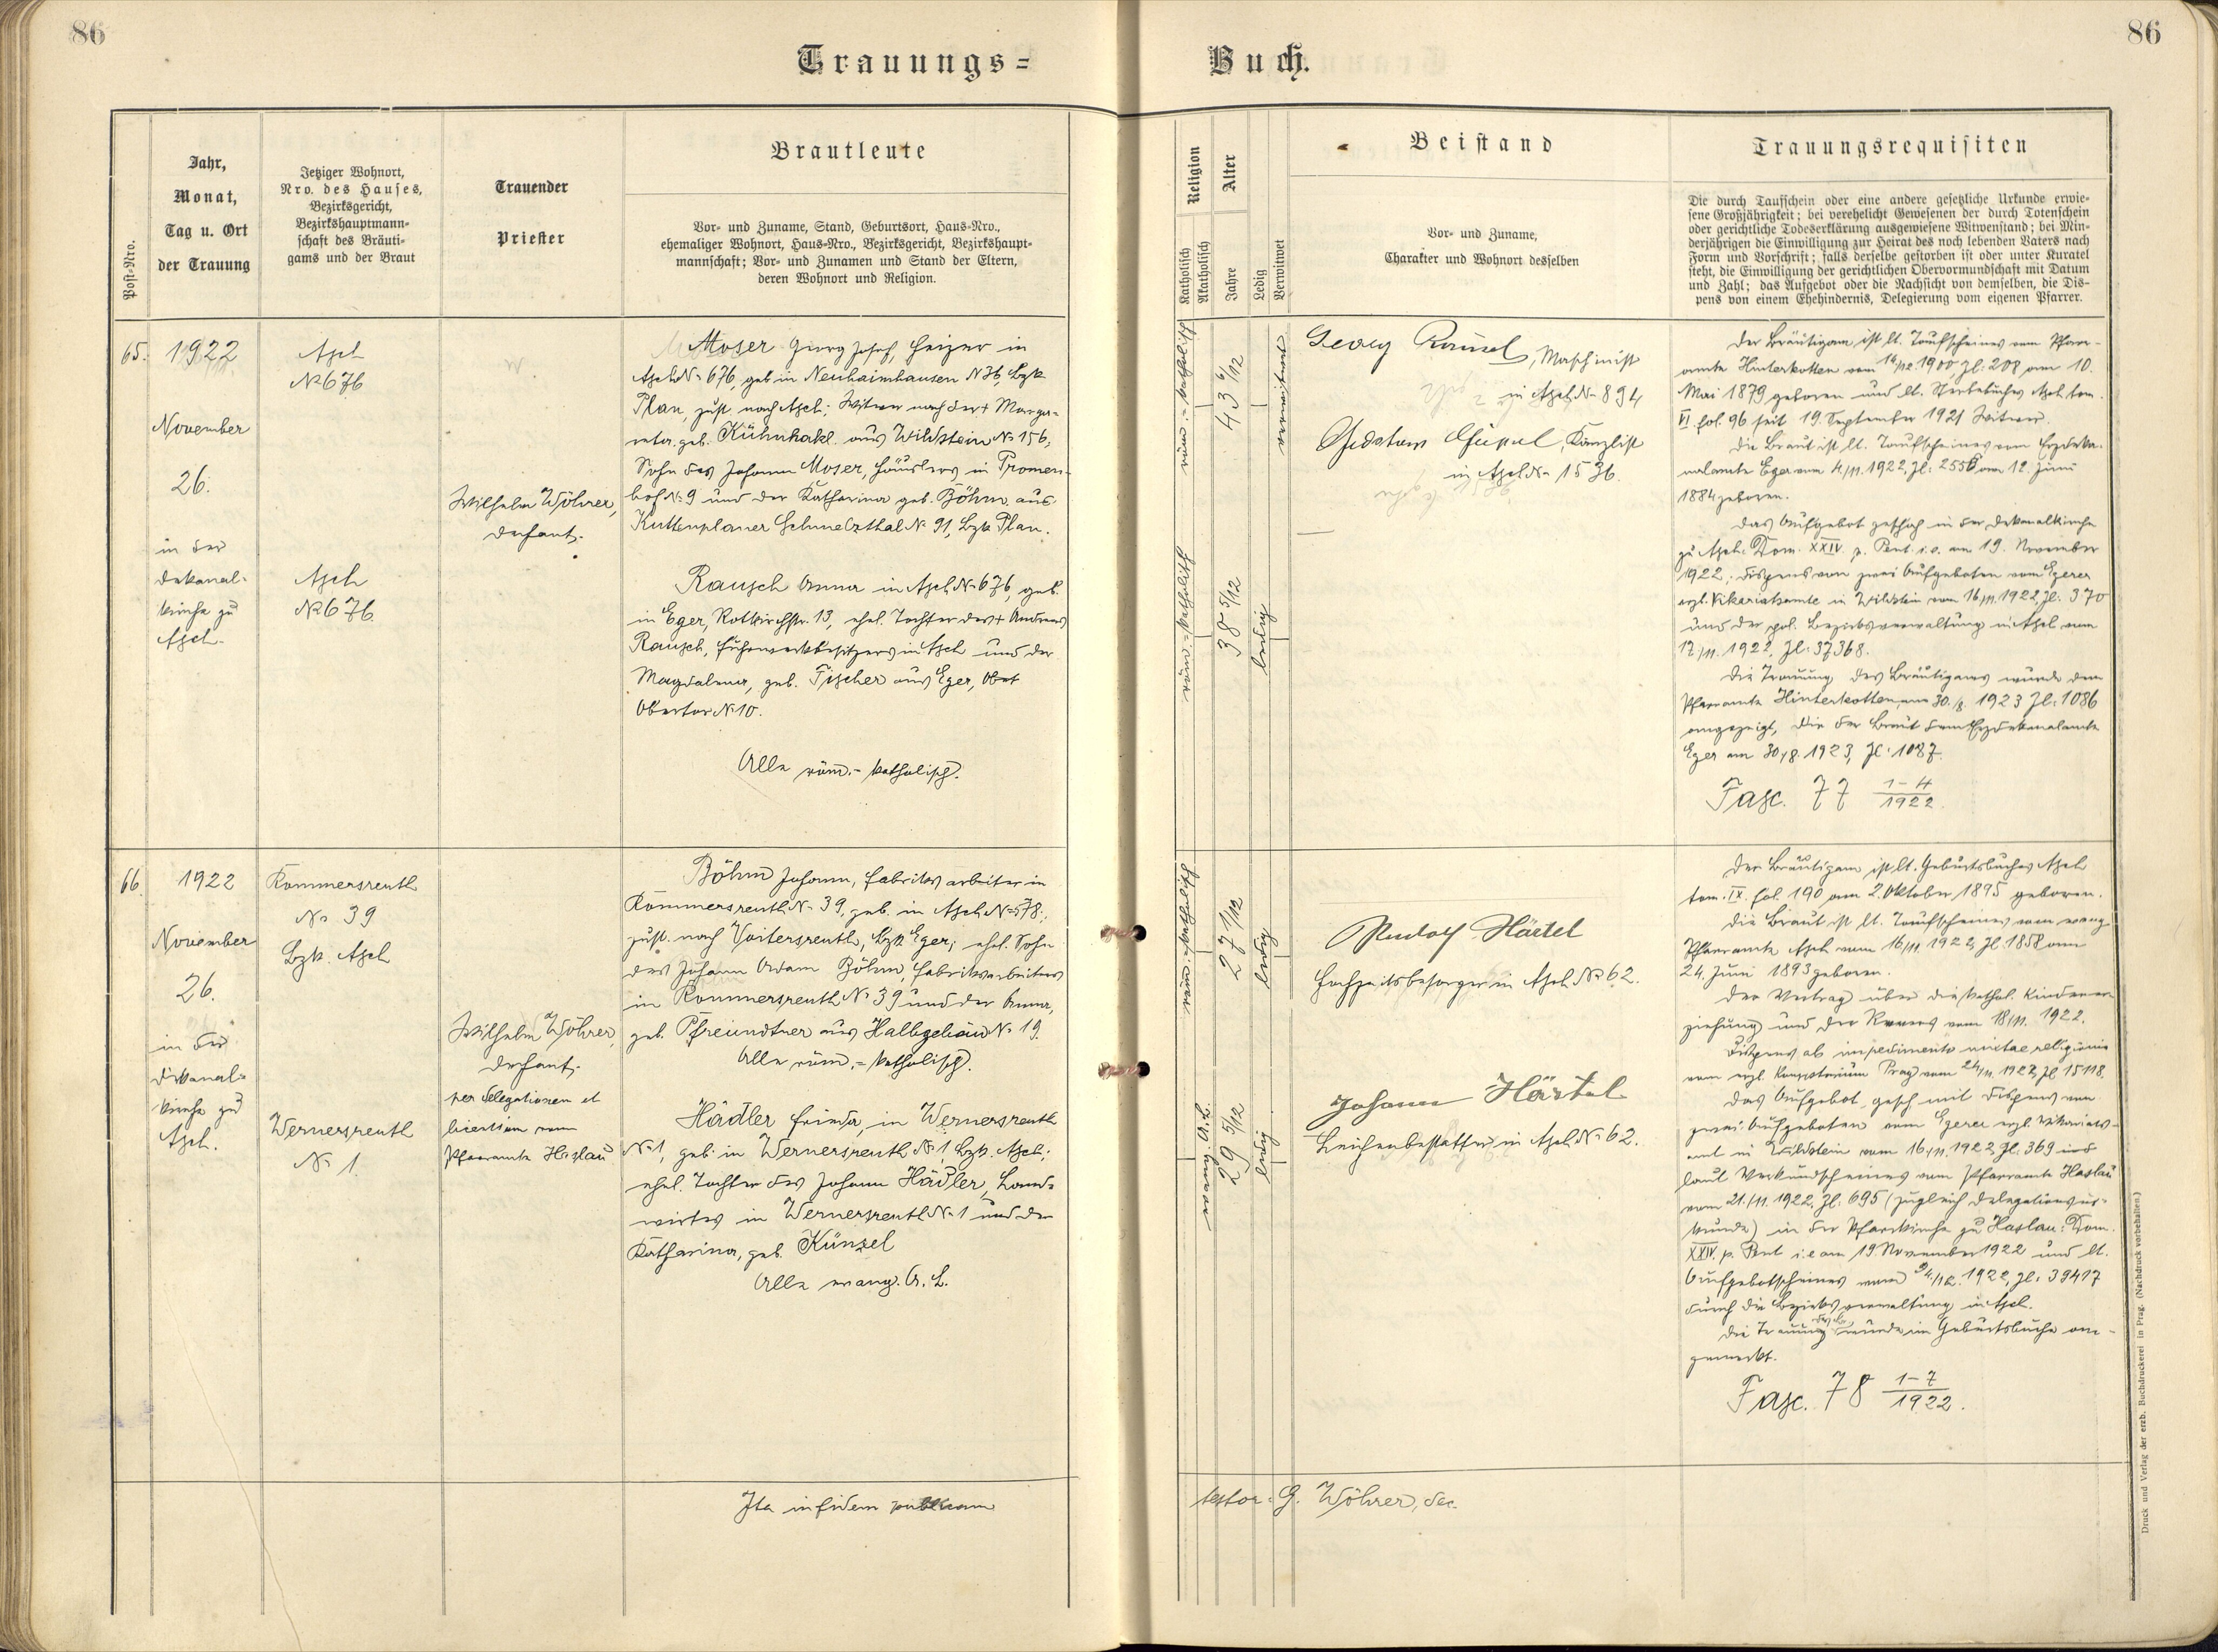 86
86
Trauungs=
Buch.
Post-Nro.
Jahr,
Monat,
Tag u. Ort
der Trauung
Jetziger Wohnort,
Nro. des Hauses,
Bezirksgericht,
Bezirkshauptmann-
schaft des Bräuti-
gams und der Braut
Trauender
Priester
Brautleute
Vor- und Zuname, Stand, Geburtsort, Haus-Nro.,
ehemaliger Wohnort, Haus-Nro., Bezirksgericht, Bezirkshaupt-
mannschaft; Vor- und Zunamen und Stand der Eltern,
deren Wohnort und Religion.
Religion
Katholisch
Akatholisch
Alter
Jahre
Ledig
Verwitwet
Beistand
Vor- und Zuname,
Charakter und Wohnort desselben
Trauungsrequisiten
Die durch Taufschein oder eine andere gesetzliche Urkunde erwie-
sene Großjährigkeit; bei verehelicht Gewesenen der durch Totenschein
oder gerichtliche Todeserklärung ausgewiesene Witwenstand; bei Min-
derjährigen die Einwilligung zur Heirat des noch lebenden Vaters nach
Form und Vorschrift; falls derselbe gestorben ist oder unter Kuratel
steht, die Einwilligung der gerichtlichen Obervormundschaft mit Datum
und Zahl; das Aufgebot oder die Nachsicht von demselben, die Dis-
pens von einem Ehehindernis, Delegierung vom eigenen Pfarrer.
65.
1922
November
26.
in der
Dekanal-
kirche zu
Asch.
Asch
No 676
Asch
No 676
Wilhelm Wöhrer,
Dechant.
Moser Georg Josef, Heizer in
Asch No 676, geb. in Neuhaimhausen N 36, Bzk.
Plan, zust. nach Asch; Witwer nach der + Marga-
reta, geb. Kühnhakl aus Wildstein No 156,
Sohn des Johann Moser, Häuslers in Promen-
hof No 9 und der Katharina geb. Böhm aus
Kuttenplaner Schmelzthal No 91, Bzk. Plan.
Rausch Anna in Asch No 676, geb.
in Eger, Rotkirchstr. 13, ehel. Tochter des + Andreas
Rausch, Fuhrwerkbesitzers in Asch und der
Magdalena, geb. Fischer aus Eger,
Obertor No 10.
Alle röm.-katholisch.
röm.-katholisch
43 6/12
verwitwet
röm.-katholisch
38 5/12
ledig
Georg , Maschinist
in Asch No 894
, Kanzlist
in Asch No 1536.
Der Bräutigam ist lt. Taufscheines vom Pfarr-
amte Hinterkotten vom 14/12. 1900 Zl: 208 am 10.
Mai 1879 geboren und lt. Sterbebuches Asch tom.
VI fol. 96 seit 19. September 1921 Witwer.
Die Braut ist lt. Taufscheines vom Erzdeka-
nalamte Eger vom 4/11. 1922, Zl: 2556 am 12. Juni
1884 geboren.
Das Aufgebot geschah in der Dekanalkirche
zu Asch: Dom. XXIV. p. Pent. i. e. am 19. November
1922; Dispens von zwei Aufgeboten vom Egerer
erzb. Vikariatsamte in Wildstein vom 16/11. 1922, Zl: 370
und der pol. Bezirksverwaltung in Asch vom
17/11. 1922, Zl: 37368.
Die Trauung des Bräutigams wurde dem
Pfarramte Hinterkotten am 30./8. 1923 Zl: 1086
angezeigt, die der Braut dem Erzdekanalamte
Eger am 30/8. 1923, Zl: 1087.
Fasc. 77 1-4/1922.
66.
1922
November
26.
in der
Dekanal-
kirche zu
Asch.
Rommersreuth
No 39
Bzk. Asch
Wernersreuth
No 1.
Wilhelm Wöhrer,
Dechant.
per delegationem et
licentiam vom
Pfarramte Haslau
Böhm Johann, Fabriksarbeiter in
Rommersreuth No 39, geb. in Asch No 578,
zust. nach Voitersreuth, Bzk. Eger; ehel. Sohn
des Johann Adam Böhm, Fabriksarbeiters
in Rommersreuth No 39 und der Anna,
geb. Pfreundtner aus Halbgebäu No 19.
Alle röm.-katholisch.
Hädler Frieda, in Wernersreuth
No 1, geb. in Wernersreuth No 1, Bzk. Asch;
ehel. Tochter des Johann Hädler, Land-
wirtes in Wernersreuth No 1 und der
Katharina, geb. Künzel
Alle evang. A. B.
röm.-katholisch
27 1/12
ledig
evang. A. B.
29 5/12
ledig
Rudolf Härtel
Hochzeitsbesorger in Asch No 62.
Johann Härtel
Leichenbestatter in Asch No 62.
Der Bräutigam ist lt. Geburtsbuches Asch
tom. IX. fol. 190 am 2. Oktober 1895 geboren.
Die Braut ist lt. Taufscheines vom evang.
Pfarramte Asch vom 16/11. 1922, Zl. 1858 am
24. Juni 1893 geboren.
Der Vertrag über die kathol. Kinderer-
ziehung und der Revers vom 18/11. 1922.
Dispens ab impedimento mixtae religionis
vom erzb. Konsistorium Prag vom 24/11. 1922, Zl. 15118.
Das Aufgebot gesch. mit Dispens von
zwei Aufgeboten vom Egerer erzb. Vikariats-
amt in Wildstein vom 16/11. 1922, Zl. 369 und
laut Verkündscheines vom Pfarramte Haslau
vom 21./11. 1922, Zl. 695 (zugleich Delegationsur-
kunde) in der Pfarrkirche zu Haslau: Dom.
XXIV. p. Pent. i. e. am 19. November 1922 und lt.
Aufgebotscheines vom 1922, Zl: 39417
durch die Bezirksverwaltung in Asch.
Die Trauung wurde im Geburtsbuche an-
gemerkt.
Fasc. 78 1-7/1922.
Ita in fidem publicam
testor: G. Wöhrer, dec.
Druck und Verlag der erzb. Buchdruckerei in Prag. (Nachdruck vorbehalten.)